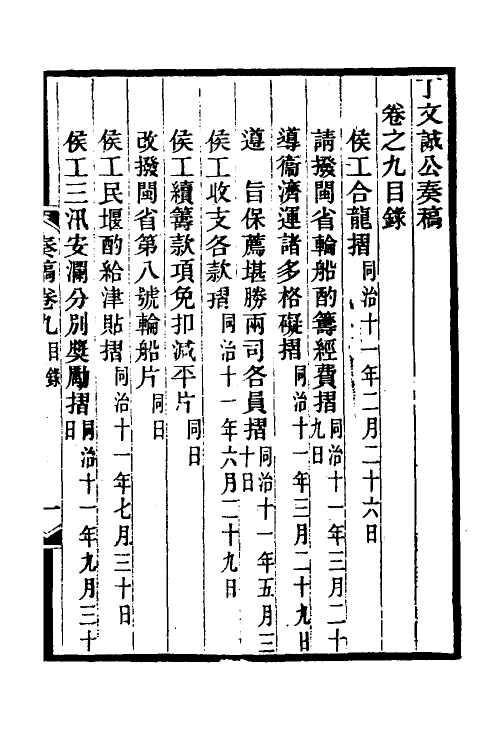 丁文誠公奏稿
卷之九目錄
侯工合龍摺同治十一年二月二十六日
請撥閩省輪船酌籌經費摺同治十一年三月二十九日
導衞濟運諸多格礙摺同治十一年三月二十九日
遵　旨保薦堪勝兩司各員摺同治十一年五月三十日
侯工收支各款摺同治十一年六月二十九日
侯工續籌款項免扣減平片同日
改撥閩省第八號輪船片同日
侯工民堰酌給津貼摺同治十一年七月三十日
侯工三汛安瀾分別獎勵摺同治十一年九月三十日
奏稿卷九目錄　一